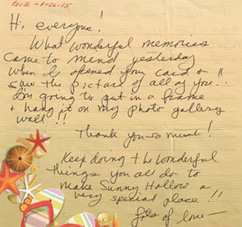 Hi, everyone!
What wonderful memories
came to mind yesterday
when I opened your card &
saw the picture of all of you..
I'm going to put in a frame
& hang it on my photo gallery
wall!!
Thank you so much!
Keep doing the wonderful
things you all do to
make Sunny Hollow a
very special place!!
Lots of love—